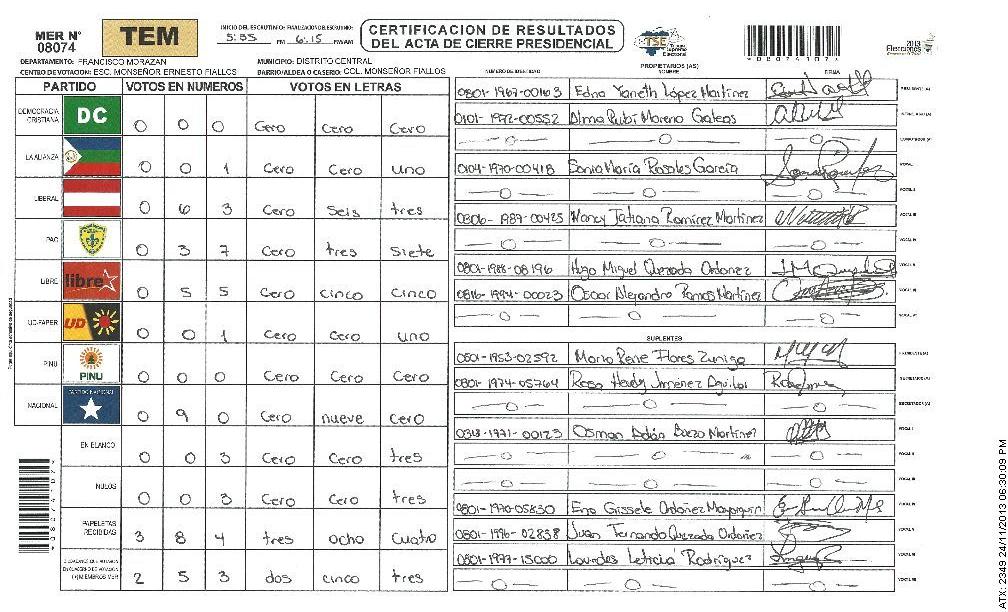 MER N° 08074
TEM
INICIO DEL ESCRUTINIO: 5:35 PM FINALIZACION DEL ESCRUTINIO: 6:15 PM/AM
CERTIFICACION DE RESULTADOS
DEL ACTA DE CIERRE PRESIDENCIAL
TSE
Tribunal Supremo Electoral
08074107
2013
Elecciones
DEPARTAMENTO: FRANCISCO MORAZAN MUNICIPIO: DISTRITO CENTRAL
CENTRO DE VOTACION: ESC. MONSEÑOR ERNESTO FIALLOS BARRIO/ALDEA O CASERIO: COL. MONSEÑOR FIALLOS
PARTIDO VOTOS EN NUMEROS VOTOS EN LETRAS
DEMOCRACIA CRISTIANA DC 0 0 0 Cero Cero Cero
LA ALIANZA 0 0 1 Cero Cero uno
LIBERAL 0 6 3 Cero Seis tres
PAC 0 3 7 Cero tres Siete
LIBRE libre 0 5 5 Cero Cinco Cinco
UD-FAPER UD 0 0 1 Cero Cero uno
PINU PINU 0 0 0 Cero Cero Cero
NACIONAL PARTIDO NACIONAL 0 9 0 Cero nueve Cero
EN BLANCO 0 0 3 Cero Cero tres
NULOS 0 0 3 Cero Cero tres
PAPELETAS RECIBIDAS 3 8 4 tres ocho Cuatro
2 5 3 dos cinco tres
08074107
NUMERO DE IDENTIDAD PROPIETARIOS (AS) NOMBRE FIRMA
0801-1967-00163 Edna Yaneth López Martinez PRESIDENTE (A)
0101-1972-00552 Alma Rubi Moreno SECRETARIO (A)
ESCRUTADOR (A)
0104-1970-00418 Sonia María Rosales García VOCAL I
VOCAL II
0306-1987-00425 Nancy Tatiana Ramírez Martinez VOCAL III
VOCAL IV
0801-1988-08196 Hugo Miguel Quezada Ordoñez VOCAL V
0816-1994-00023 Oscar Alejandro Ramos Martinez VOCAL VI
SUPLENTES
0801-1953-02592 Mario Rene Flores Zuniga PRESIDENTE (A)
0801-1974-05764 Rosa Heidy Jimenez Aguilar SECRETARIO (A)
ESCRUTADOR (A)
0318-1971-00123 Osman Adán Martinez VOCAL I
VOCAL II
VOCAL III
0801-1970-05830 Gissele Ordóñez VOCAL IV
0801-1996-02838 Juan Fernando Quezada Ordoñez VOCAL V
0801-1977-15000 Lourdes Leticia Rodríguez
ATX: 2349 24/11/2013 06:30:09 PM